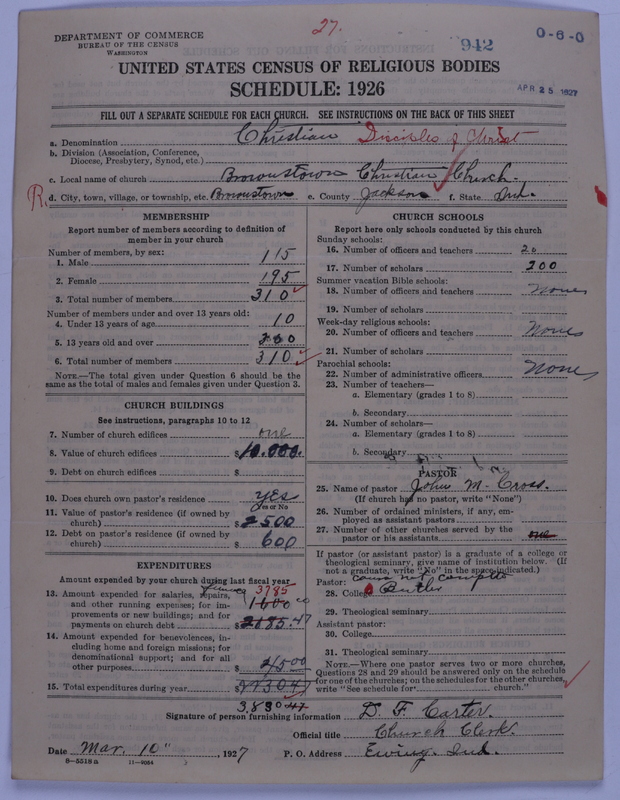 27.
DEPARTMENT OF COMMERCE
BUREAU OF THE CENSUS
WASHINGTON
942
0-6-0
UNITED STATES CENSUS OF RELIGIOUS BODIES
SCHEDULE: 1926
APR 25 1927
FILL OUT A SEPARATE SCHEDULE FOR EACH CHURCH. SEE INSTRUCTIONS ON THE BACK OF THIS SHEET
a. Denomination Christian Disciples of Christ
b. Division (Association, Conference,
Diocese, Presbytery, Synod, etc.)
c. Local name of church Brownstown Christian Church.
R. d. City, town, village, or township, etc. Brownstown e. County Jackson f. State Ind.
MEMBERSHIP
Report number of members according to definition of
member in your church
Number of members, by sex:
1. Male 115
2. Female 195
3. Total number of members 310
Number of members under and over 13 years old:
4. Under 13 years of age 10
5. 13 years old and over 300
6. Total number of members 310
NOTE.—The total given under Question 6 should be the
same as the total of males and females given under Question 3.
CHURCH BUILDINGS
See instructions, paragraphs 10 to 12
7. Number of church edifices one
8. Value of church edifices $10.000.
9. Debt on church edifices $
10. Does church own pastor's residence yes
Yes or No
11. Value of pastor's residence (if owned by
church) $2500
12. Debt on pastor's residence (if owned by
church) $600
EXPENDITURES
Amount expended by your church during last fiscal year
13. Amount expended for salaries, repairs, 3785
and other running expenses; for im- 1600 00
provements or new buildings; and for
payments on church debt $2185.47
14. Amount expended for benevolences, in-
cluding home and foreign missions; for
denominational support; and for all
other purposes $45 00
15. Total expenditures during year $
3.830.47
CHURCH SCHOOLS
Report here only schools conducted by this church
Sunday schools:
16. Number of officers and teachers 20
17. Number of scholars 200
Summer vacation Bible schools:
18. Number of officers and teachers None
19. Number of scholars
Week-day religious schools:
20. Number of officers and teachers None
21. Number of scholars
Parochial schools:
22. Number of administrative officers None
23. Number of teachers—
a. Elementary (grades 1 to 8)
b. Secondary
24. Number of scholars—
a. Elementary (grades 1 to 8)
b. Secondary
PASTOR
25. Name of pastor John M. Cross.
(If church has no pastor, write "None")
26. Number of ordained ministers, if any, em-
ployed as assistant pastors
27. Number of other churches served by the
pastor or his assistants one
If pastor (or assistant pastor) is a graduate of a college or
theological seminary, give name of institution below. (If
not a graduate, write "No" in the space indicated.)
Pastor: course not complete
28. College Butler
29. Theological seminary
Assistant pastor:
30. College
31. Theological seminary
NOTE.—Where one pastor serves two or more churches,
Questions 28 and 29 should be answered only on the schedule
for one of the churches; on the schedules for the other churches,
write "See schedule for church."
Signature of person furnishing information D. F. Carter.
Official title Church Clerk.
Date Mar. 10", 1927 P. O. Address Ewing. Ind.
8-5518a 11-9064